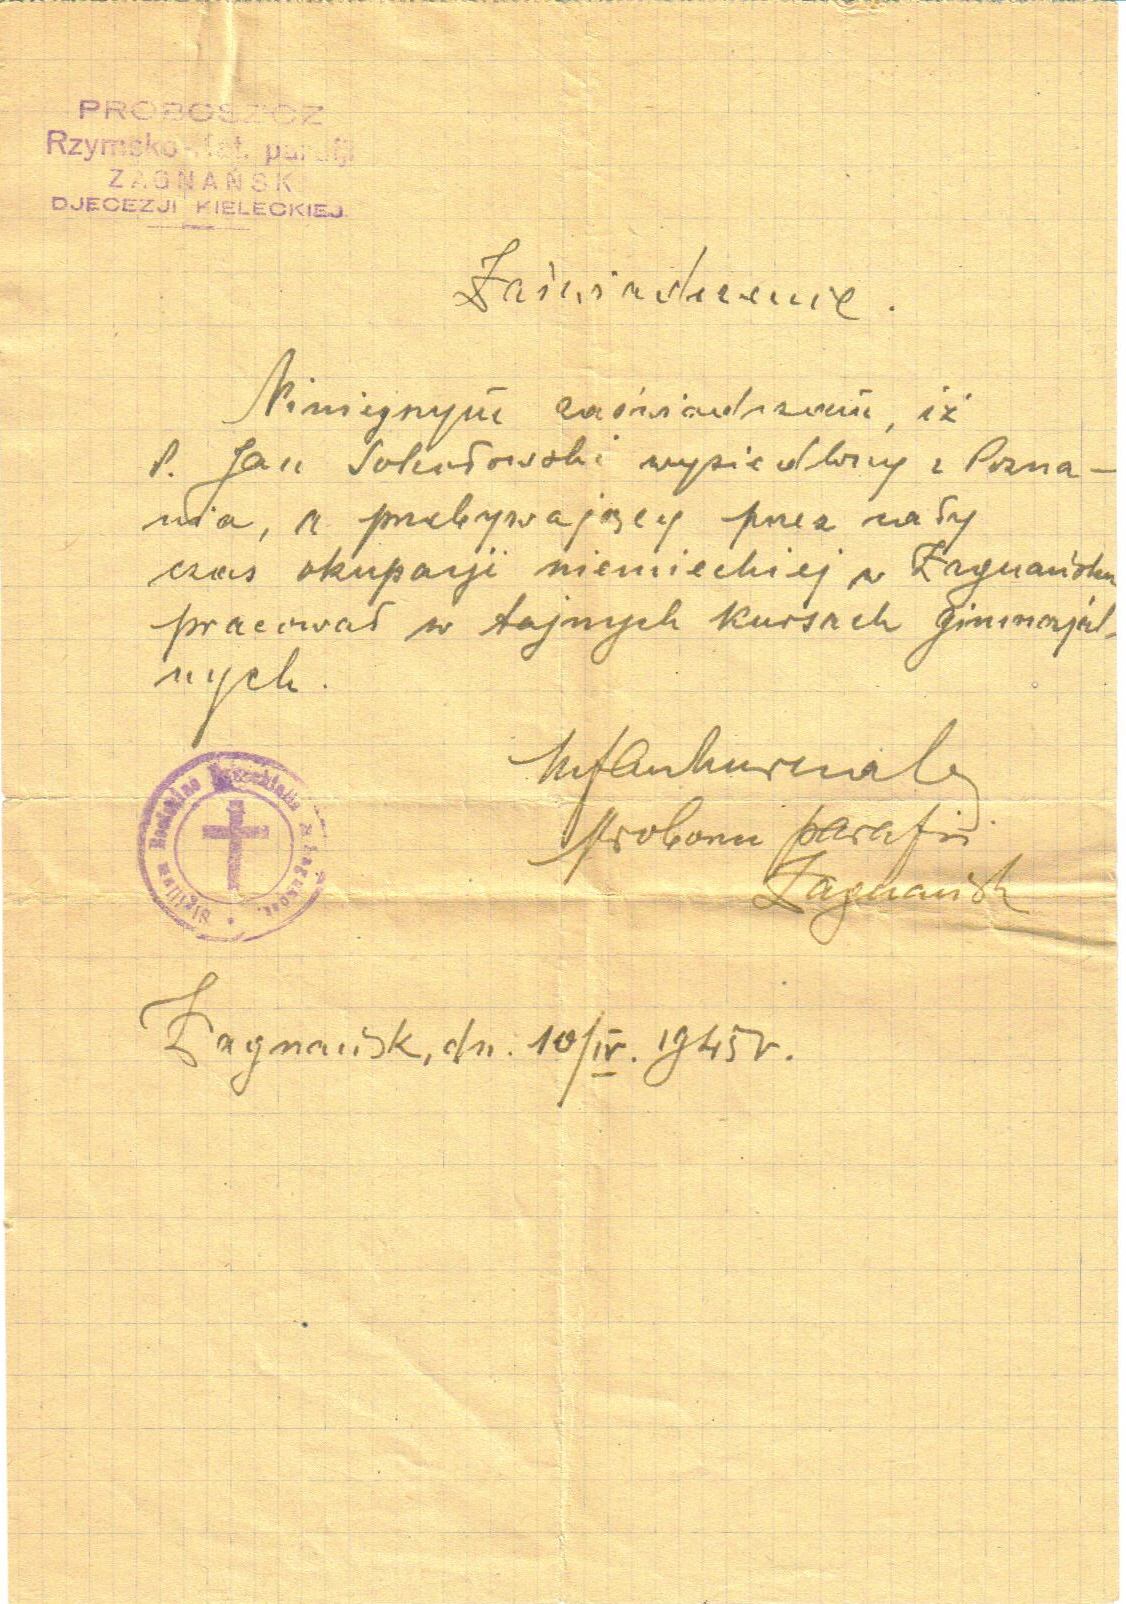 PROBOSZCZ
Rzymsko-kat. parafji
ZAGNAŃSK
DJECEZJI KIELECKIEJ
Zaświadczenie.
Niniejszym zaświadczam, iż
P. Jan Sokołowski wysiedlony z Pozna-
nia, a przebywający przez cały
czas okupacji niemieckiej w Zagnańsku
pracował w tajnych kursach gimnazjal-
nych.
Proboszcz parafii
Zagnańsk
Sigillum Ecclesiae Parochialis
Zagnańsk, dn. 10/IV. 1945 r.